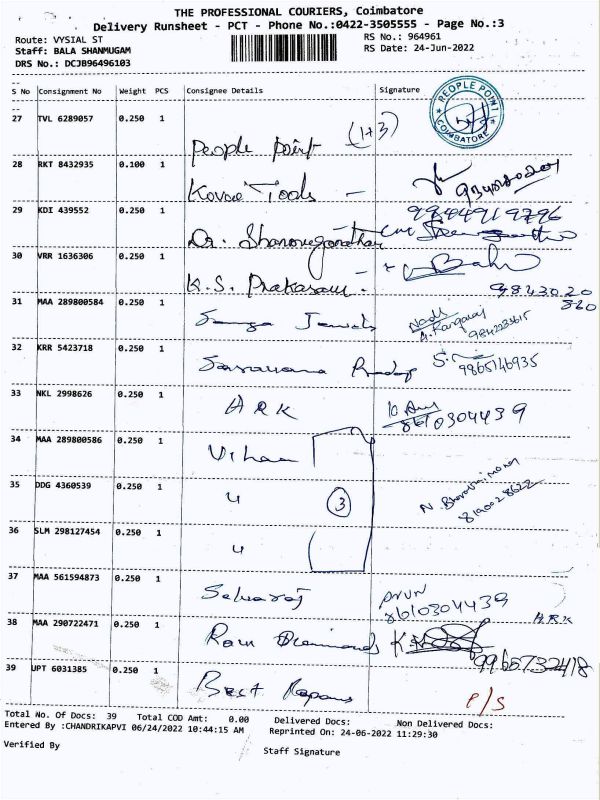 THE PROFESSIONAL COURIERS, Coimbatore
Delivery Runsheet - PCT - Phone No.:0422-3505555 - Page No.:3
Route: VYSIAL ST
RS No.: 964961
Staff: BALA SHANMUGAM
RS Date: 24-Jun-2022
DRS No.: DCJB96496103
S No Consignment No Weight PCS Consignee Details Signature
27 TVL 6289057 0.250 1 People point (1+3) PEOPLE POINT COIMBATORE
28 RKT 8432935 0.100 1 Kovai Tools -
29 KDI 439552 0.250 1 Dr. 9944919796
30 VRR 1636306 0.250 1 K.S. Prakasam - 9843020
31 MAA 289800584 0.250 1
32 KRR 5423718 0.250 1 9865146935
33 NKL 2998626 0.250 1 ARK 8610304439
34 MAA 289800586 0.250 1
35 DDG 4360539 0.250 1 " 3
36 SLM 298127454 0.250 1 "
37 MAA 561594873 0.250 1 Selvaraj 8610304439 ARK
38 MAA 290722471 0.250 1 Ram Diamonds 9965732418
39 UPT 6031385 0.250 1 Best P/S
Total No. Of Docs: 39 Total COD Amt: 0.00 Delivered Docs: Non Delivered Docs:
Entered By :CHANDRIKAPVI 06/24/2022 10:44:15 AM Reprinted On: 24-06-2022 11:29:30
Verified By
Staff Signature